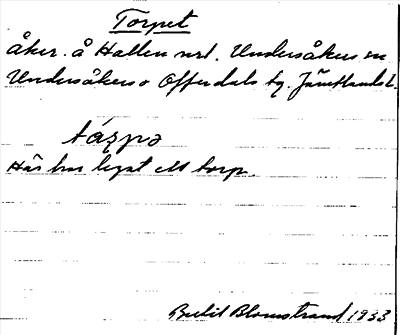 Torpet
åker. å Hallen nr 1. Undersåkers sn
Undersåkers o Offerdals tg. Jämtlands l.
táṛpə
Här har legat ett torp.
Blomstrand 1933